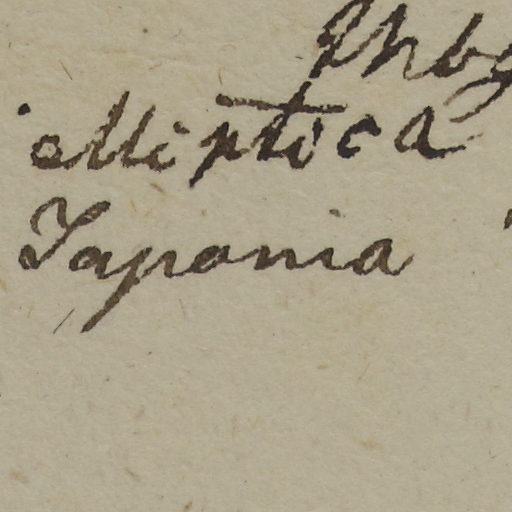 elliptica
Japonia